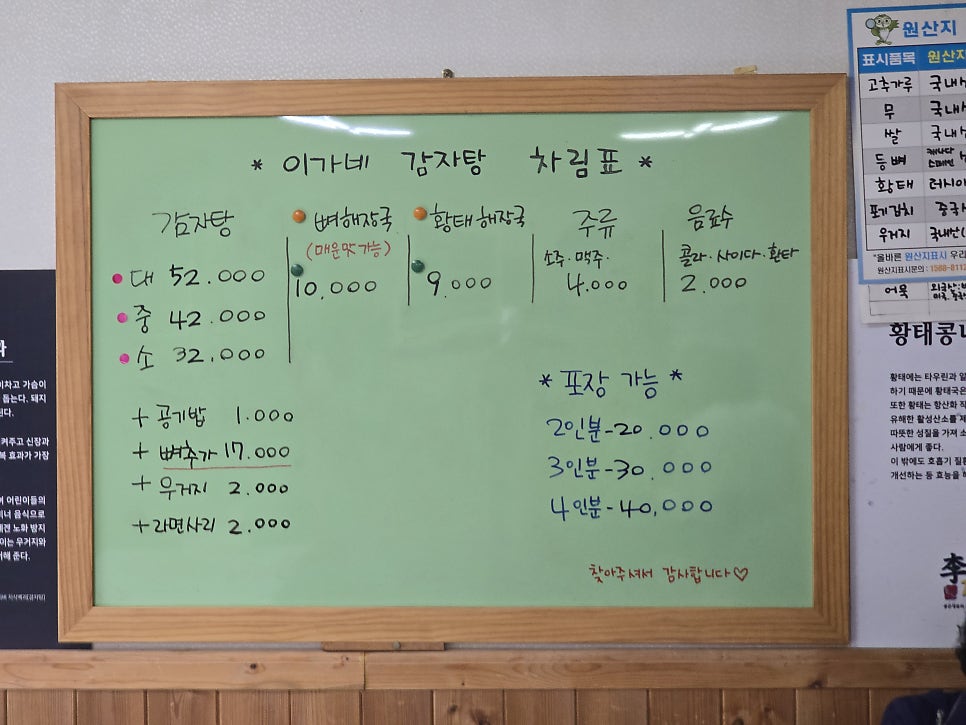 * 이가네 감자탕 차림표 *
감자탕
대 52.000
중 42.000
소 32.000
+ 공기밥 1.000
+ 뼈추가 17.000
+ 우거지 2.000
+ 라면사리 2.000
뼈해장국
(매운맛가능)
10,000
황태해장국
9.000
주류
소주·맥주·
4.000
음료수
콜라·사이다·환타
2.000
* 포장 가능 *
2인분-20.000
3인분-30.000
4인분-40,000
찾아주셔서 감사합니다♡
원산지
표시품목 원산지
고추가루 국내산
무
쌀
등뼈 캐나다
스페인
황태 러시아
포기김치 중국
우거지 국내산
"올바른 원산지표시 우리
원산지표시문의 : 1588-8112
어묵
황태콩나
황태에는 타우린과 알
하기 때문에 황태국은
또한 황태는 항산화 작
유해한 활성산소를 제
따뜻한 성질을 가져 소
사람에게 좋다.
이 밖에도 호흡기 질환
개선하는 등 효능을
李
미차고 가슴이
돕는다. 돼지
된다.
켜주고 신장과
복 효과가 가장
며 어린이들의
미너 음식으로
에겐 노화 방지
이는 우거지와
해 준다.